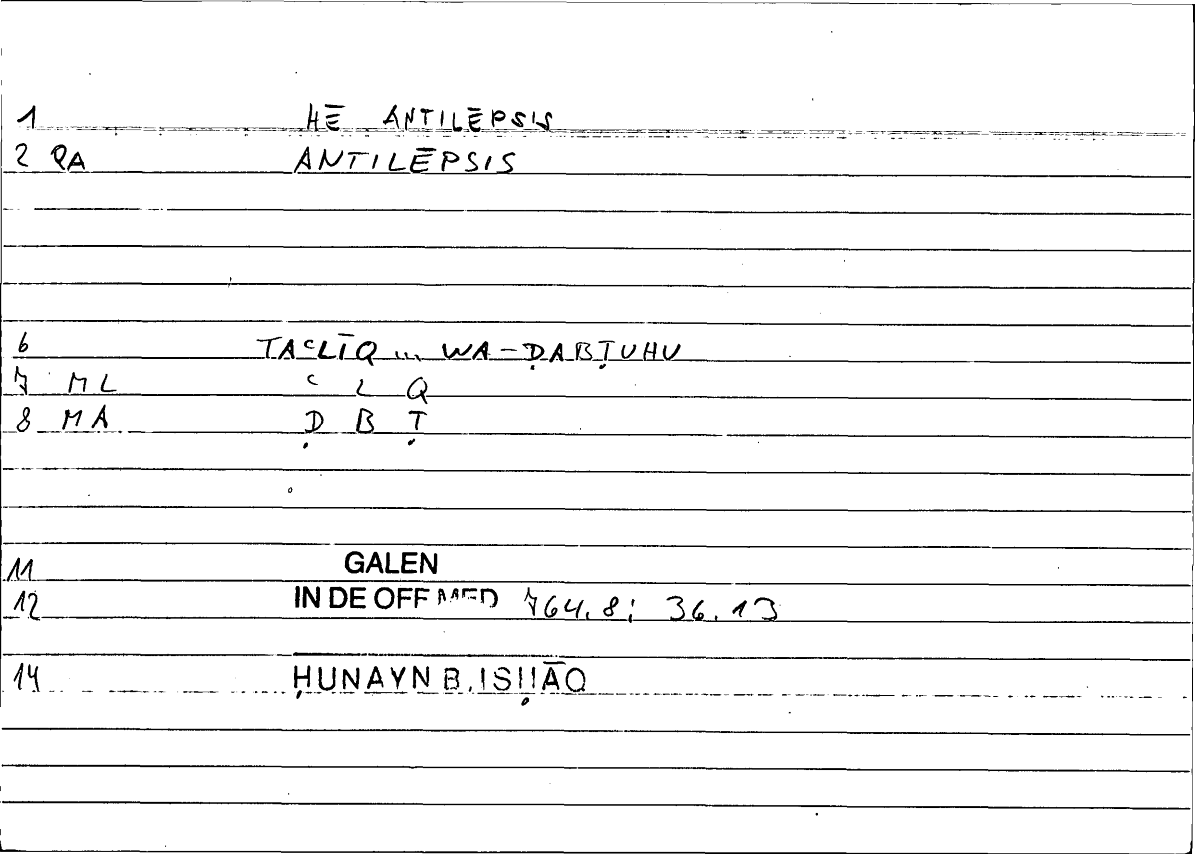 1 HĒ ANTILĒPSIS
2 QA ANTILĒPSIS
6 TAᶜLĪQ ... WA-ḌABṬUHU
7 ML ᶜ L Q
8 MA Ḍ B Ṭ
11 GALEN
12 IN DE OFF MED 764.8; 36.13
14 ḤUNAYN B. ISḤĀQ